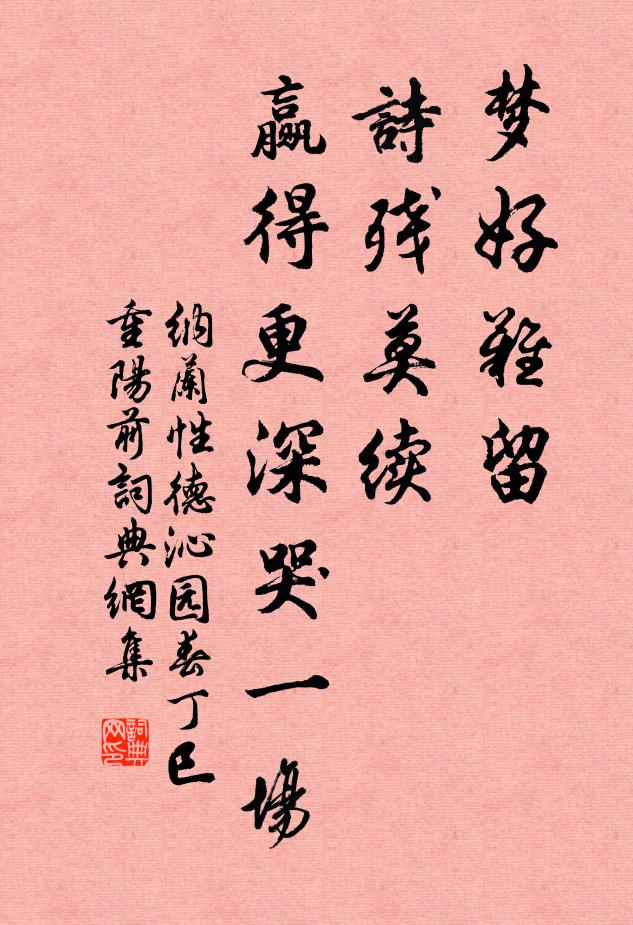 梦好难留
詩残莫续
赢得更深哭一場
纳蘭性德沁园春丁巳
重陽前詞典網集
詞典网印